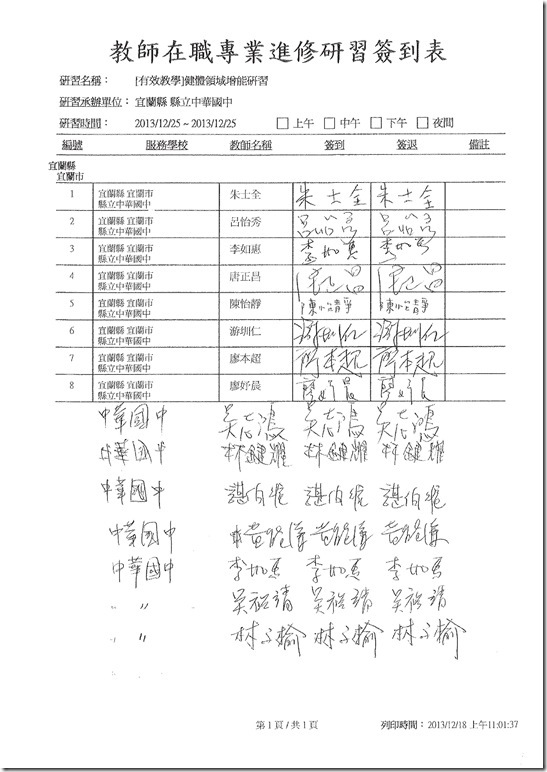 教師在職專業進修研習簽到表
研習名稱： [有效教學]健體領域增能研習
研習承辦單位： 宜蘭縣 縣立中華國中
研習時間： 2013/12/25 ~ 2013/12/25 □上午 □中午 □下午 □夜間
編號 服務學校 教師名稱 簽到 簽退 備註
宜蘭縣
宜蘭市
1 宜蘭縣 宜蘭市 朱士全 朱士全 朱士全
縣立中華國中
2 宜蘭縣 宜蘭市 呂怡秀 呂怡秀 呂怡秀
縣立中華國中
3 宜蘭縣 宜蘭市 李如惠 李如惠 李如惠
縣立中華國中
4 宜蘭縣 宜蘭市 唐正昌
縣立中華國中
5 宜蘭縣 宜蘭市 陳怡靜 陳怡靜 陳怡靜
縣立中華國中
6 宜蘭縣 宜蘭市 游圳仁 游圳仁 游圳仁
縣立中華國中
7 宜蘭縣 宜蘭市 廖本超 廖本超 廖本超
縣立中華國中
8 宜蘭縣 宜蘭市 廖妤晨 廖妤晨 廖妤晨
縣立中華國中
中華國中 吳志鴻 吳志鴻 吳志鴻
中華國中 林健耀 林健耀 林健耀
中華國中 湛伯
中華國中 黃
中華國中 李如惠 李如惠 李如惠
〃 〃 吳裕靖 吳裕靖 吳裕靖
〃 〃 林子榆 林子榆 林子榆
第 1 頁 / 共 1 頁 列印時間： 2013/12/18 上午11:01:37